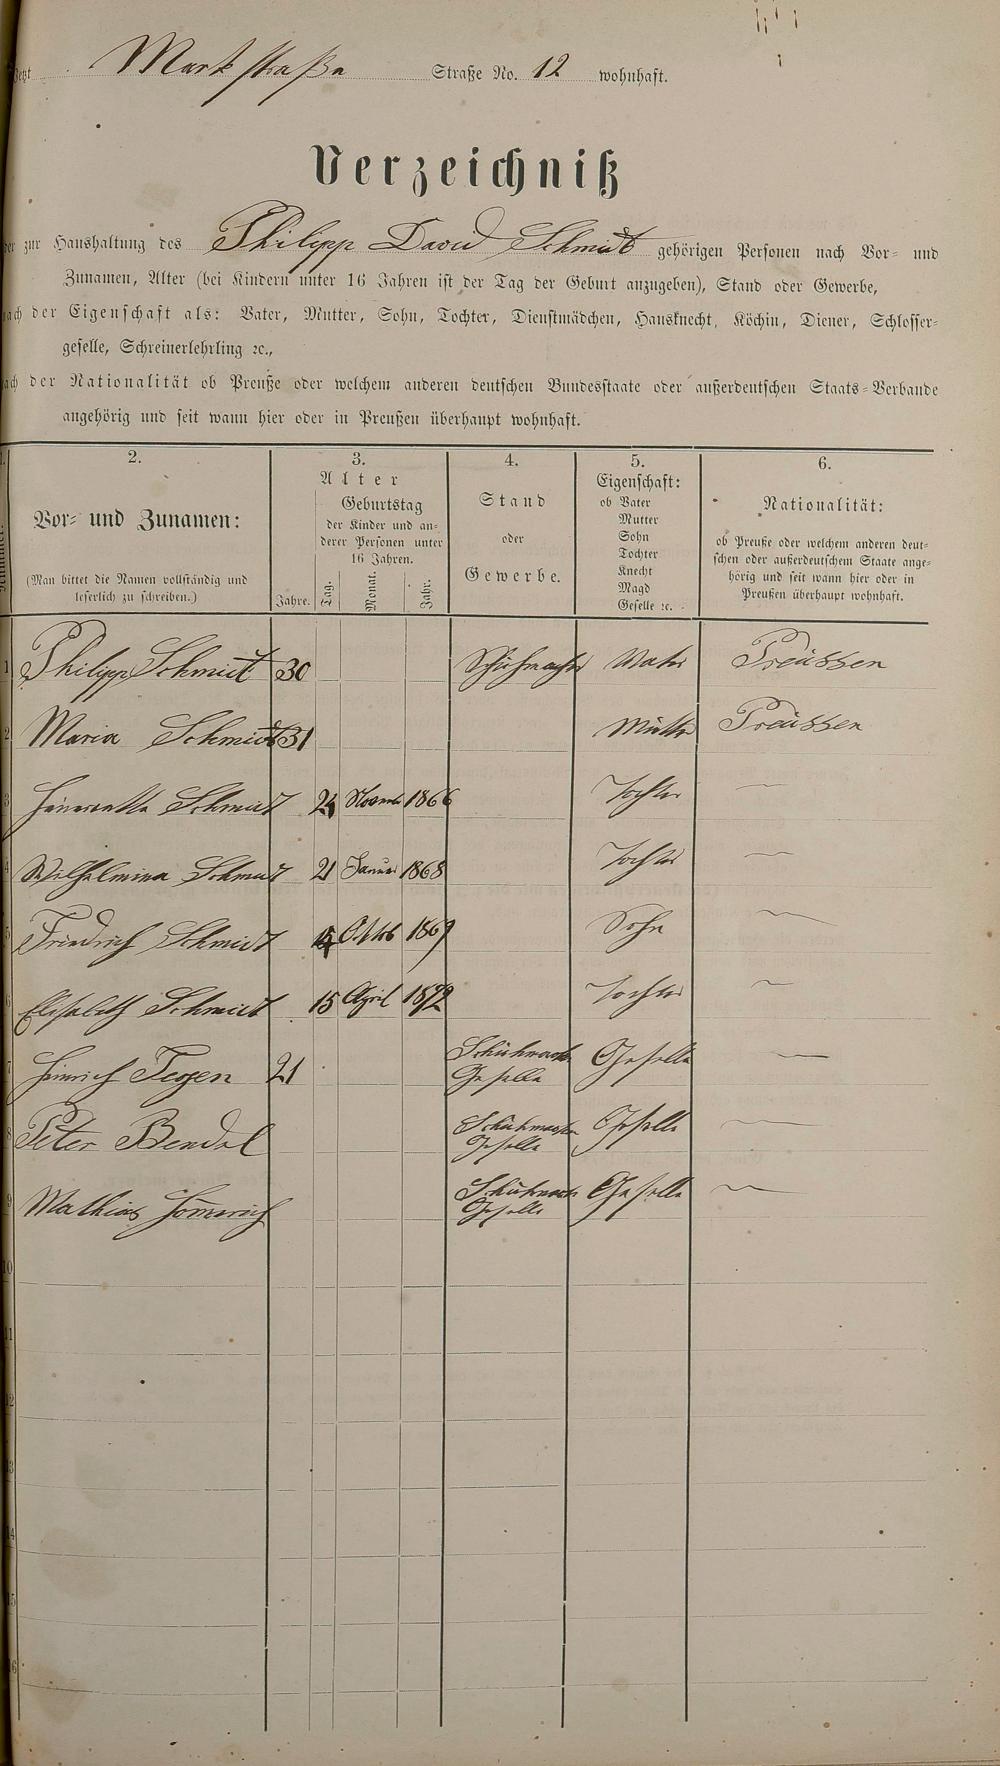 Jetzt Markstraße Straße No. 12 wohnhaft.
Verzeichniß
der zur Haushaltung des Philipp David Schmidt gehörigen Personen nach Vor- und
Zunamen, Alter (bei Kindern unter 16 Jahren ist der Tag der Geburt anzugeben), Stand oder Gewerbe,
nach der Eigenschaft als: Vater, Mutter, Sohn, Tochter, Dienstmädchen, Hausknecht, Köchin, Diener, Schlosser-
geselle, Schreinerlehrling ꝛc.,
nach der Nationalität ob Preuße oder welchem anderen deutschen Bundesstaate oder außerdeutschen Staats-Verbande
angehörig und seit wann hier oder in Preußen überhaupt wohnhaft.
1. 2. 3. 4. 5. 6.
Nummer.
Vor- und Zunamen:
(Man bittet die Namen vollständig und
leserlich zu schreiben.)
Alter
Geburtstag
der Kinder und an-
derer Personen unter
16 Jahren.
Jahre. Tag. Monat. Jahr.
Stand
oder
Gewerbe.
Eigenschaft:
ob Vater
Mutter
Sohn
Tochter
Knecht
Magd
Geselle ꝛc.
Nationalität:
ob Preuße oder welchem anderen deut-
schen oder außerdeutschem Staate ange-
hörig und seit wann hier oder in
Preußen überhaupt wohnhaft.
1 Philipp Schmidt 30 Schuhmacher Vater Preussen
2 Maria Schmidt 31 Mutter Preussen
3 Schmidt Novemb 1866 Tochter —
4 Wilhelmina Schmidt 21 Januar 1868 Tochter —
5 Friedrich Schmidt Octob 1869 Sohn —
6 Elisabeth Schmidt 15 April 1872 Tochter —
7 Heinrich Tegen 21 Schuhmacher Geselle —
Geselle
8 Peter Bendel Schuhmacher Geselle —
Geselle
9 Mathias Schuhmacher Geselle —
Geselle
10
11
12
13
14
15
16